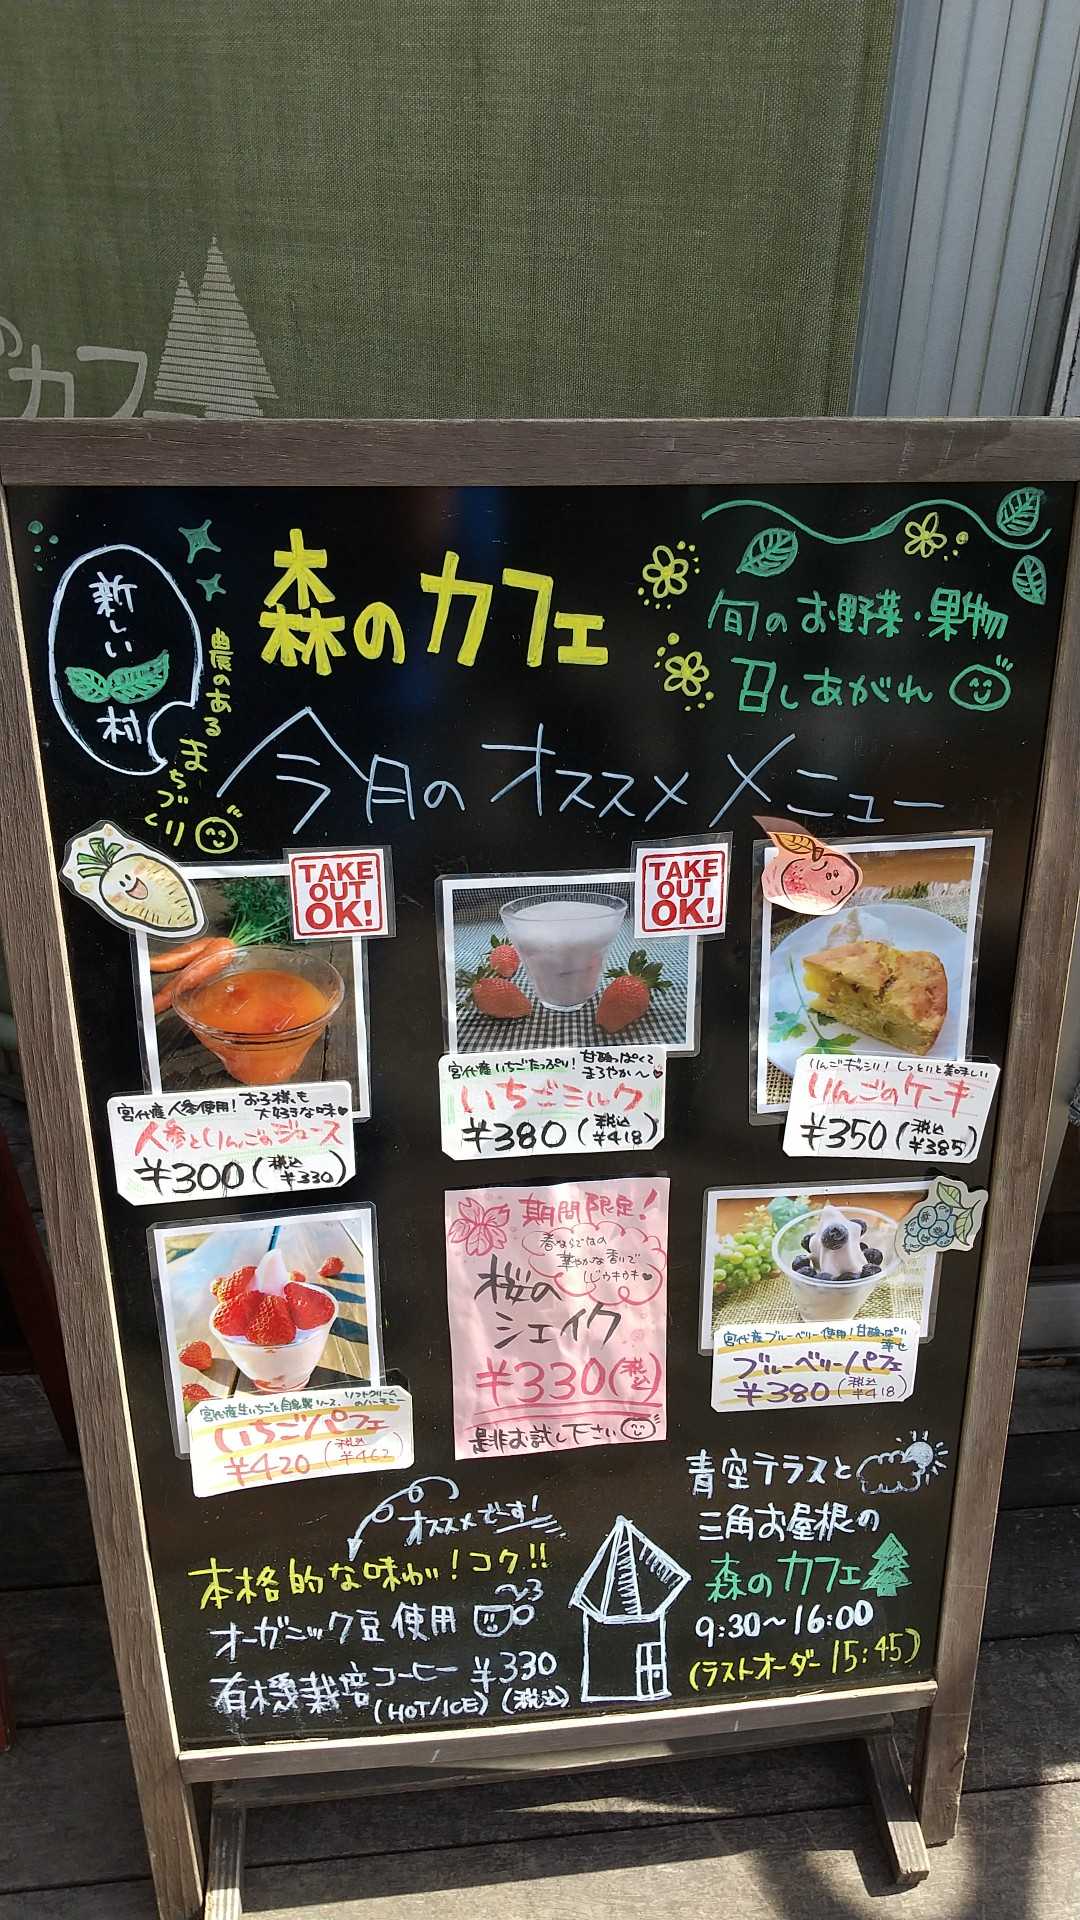 のカフェ
新しい村
農のあるまちづくり
森のカフェ
旬のお野菜・果物
召しあがれ
今月のオススメメニュー
TAKE
OUT
OK!
宮代産人参使用!お子様も
大好きな味♥
人参とりんごのジュース
¥300(税込¥330)
TAKE
OUT
OK!
宮代産いちごたっぷり!甘酸っぱくて
まろやか〜♥
いちごミルク
¥380(税込¥418)
りんごギッシリ!しっとりと美味しい
りんごのケーキ
¥350(税込¥385)
宮代産生いちごと自家製ソース、ソフトクリーム
のハーモニー
いちごパフェ
¥420(税込¥462)
期間限定!
春ならではの
華やかな香りで
ウキウキ♥
桜の
シェイク
¥330(税込)
是非お試し下さい
宮代産ブルーベリー使用!甘酸っぱい
幸せ
ブルーベリーパフェ
¥380(税込¥418)
オススメです!
本格的な味わい!コク!!
オーガニック豆使用
有機栽培コーヒー¥330
(HOT/ICE)(税込)
青空テラスと
三角お屋根の
森のカフェ
9:30〜16:00
(ラストオーダー15:45)